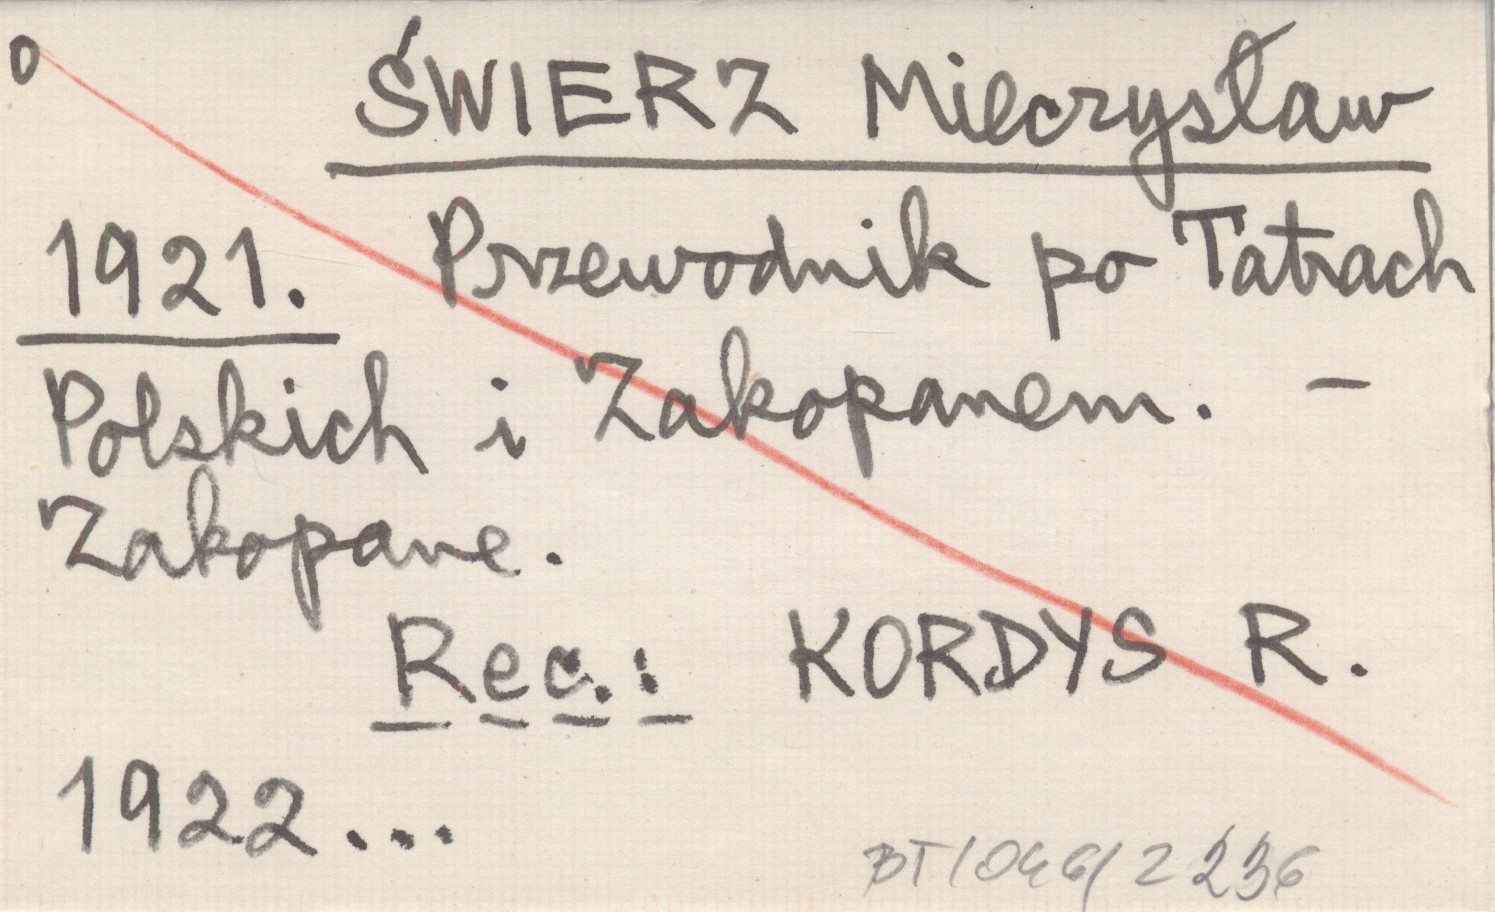 o
ŚWIERZ Mieczysław
1921. Przewodnik po Tatrach
Polskich i Zakopanem. –
Zakopane.
Rec.: KORDYS R.
1922...
BT/046/2 236